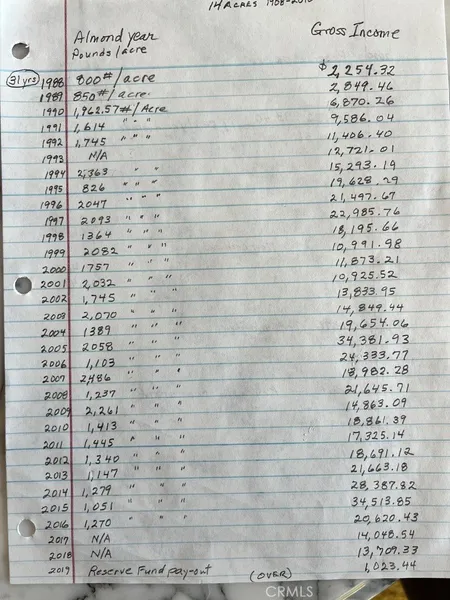 14 ACRES 1988-201
Almond year Gross Income
Pounds/acre
31 yrs 1988 800#/acre $2,254.32
1989 850#/acre 2,849.46
1990 1,962.57#/Acre 6,870.26
1991 1,614 " " " 9,586.04
1992 1,745 " " " 11,406.40
1993 N/A 12,721.01
1994 2,363 " " 15,293.19
1995 826 " " " 19,628.29
1996 2047 " " " 21,497.67
1997 2093 " " " 22,985.76
1998 1364 " " " 18,195.66
1999 2082 " " " 10,991.98
2000 1757 " " " 11,873.21
2001 2,032 " " " 10,925.52
2002 1,745 " " " 13,833.95
2003 2,070 " " " 14,849.44
2004 1389 " " " 19,654.06
2005 2058 " " " 34,381.93
2006 1,103 " " " 24,333.77
2007 2,486 " " " 18,982.28
2008 1,237 " " " 21,645.71
2009 2,261 " " " 14,863.09
2010 1,413 " " " 18,861.39
2011 1,445 " " " 17,325.14
2012 1,340 " " " 18,691.12
2013 1,147 " " " 21,663.18
2014 1,279 " " " 28,387.82
2015 1,051 " " " 34,513.85
2016 1,270 " " " 20,620.43
2017 N/A 14,048.54
2018 N/A 13,709.33
2019 Reserve Fund pay-out 1,023.44
(OVER)
CRMLS